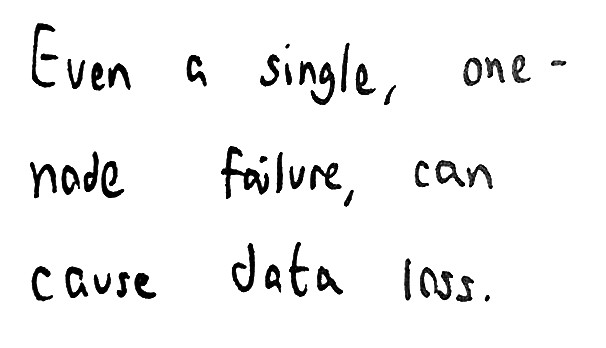 Even a single, one-
node failure, can
cause data loss.